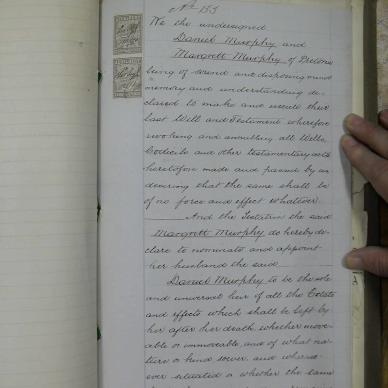 No 155
We the undersigned
Daniel Murphy and
Margrett Murphy of Pretoria
being of sound and disposing mind
memory and understanding de-
clared to make and execute their
last Will and Testament wherefore
revoking and annulling all Wills,
Codicils and other testamentary acts
heretofore made and passed by us
desiring that the same shall be
of no force and effect whatever.
And the Testatrix the said
Margrett Murphy do hereby de-
clare to nominate and appoint
her husband the said
Daniel Murphy to be the sole
and universal heir of all the Estate
and effects which shall be left by
her after her death whether move-
able or immoveable, and of what na-
ture or kind soever, and whereso-
ever situated or whether the same